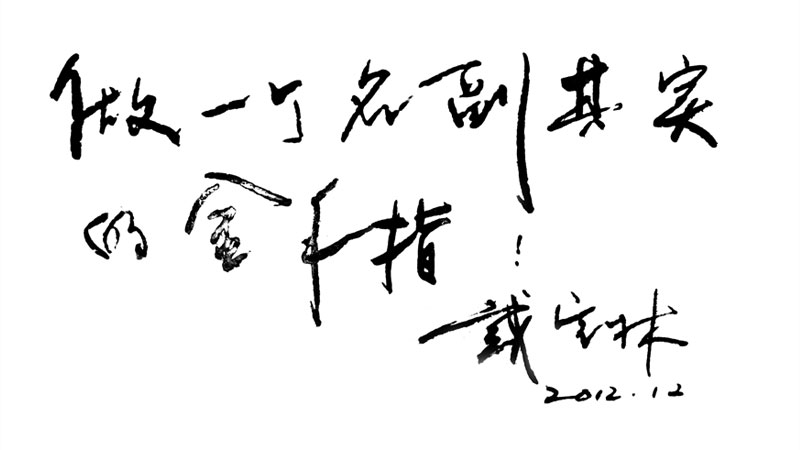 做一个名副其实
的金手指！
戴宝林
2012.12